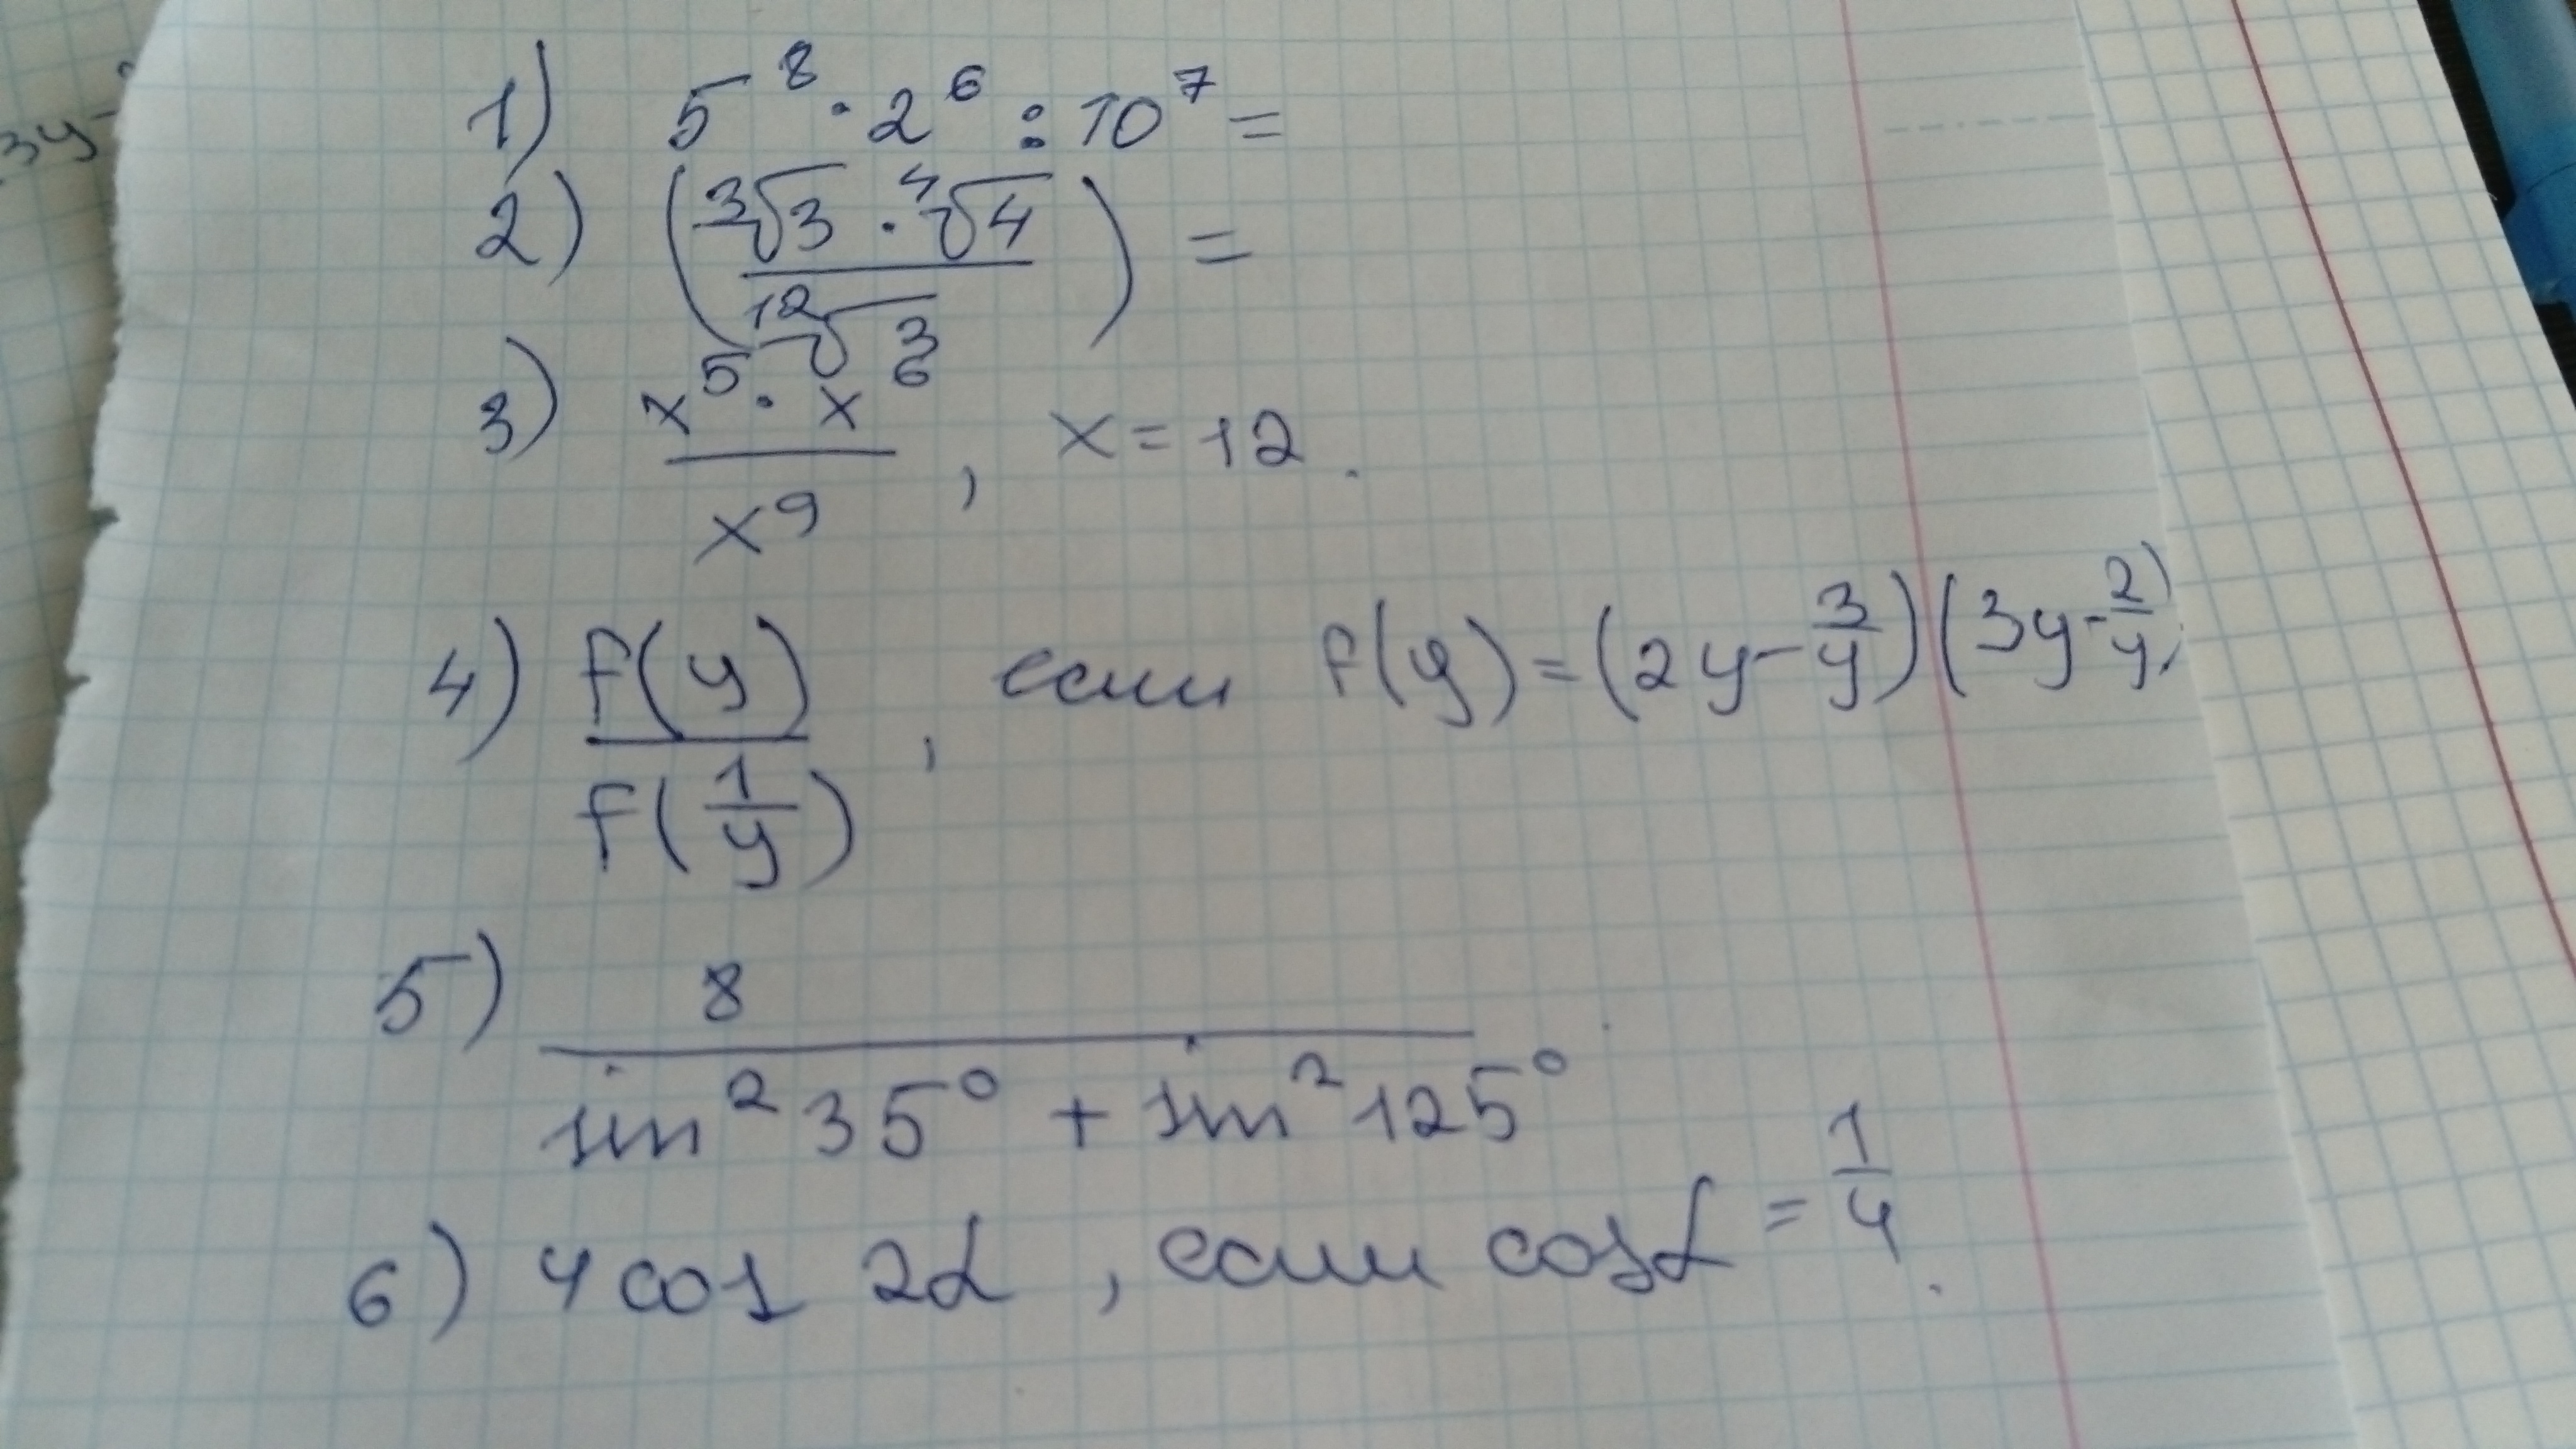 3y-
1) 5⁸ · 2⁶ : 10⁷ =
2) (∛3 · ∜4 / ¹²√3) =
3) x⁵ · x⁶ / x⁹ , x = 12.
4) f(y) / f(1/y) , если f(y) = (2y - 3/y)(3y - 2/y)
5) 8 / sin²35° + sin²125°
6) 4 cos 2α , если cosα = 1/4.